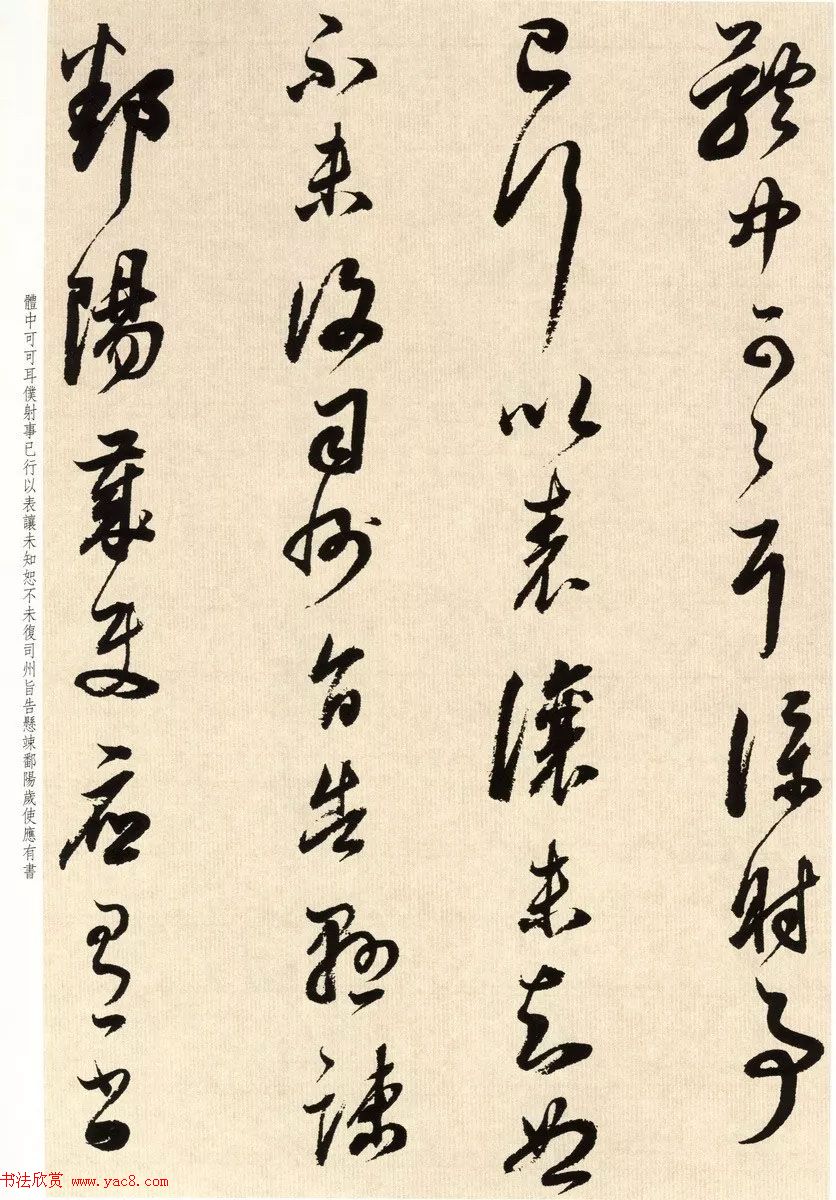 體中可可耳僕射事
已行以表讓未知恕
不未復司州旨告懸竦
鄱陽歲使應有書
體中可可耳僕射事已行以表讓未知恕不未復司州旨告懸竦鄱陽歲使應有書
书法欣赏 www.yac8.com